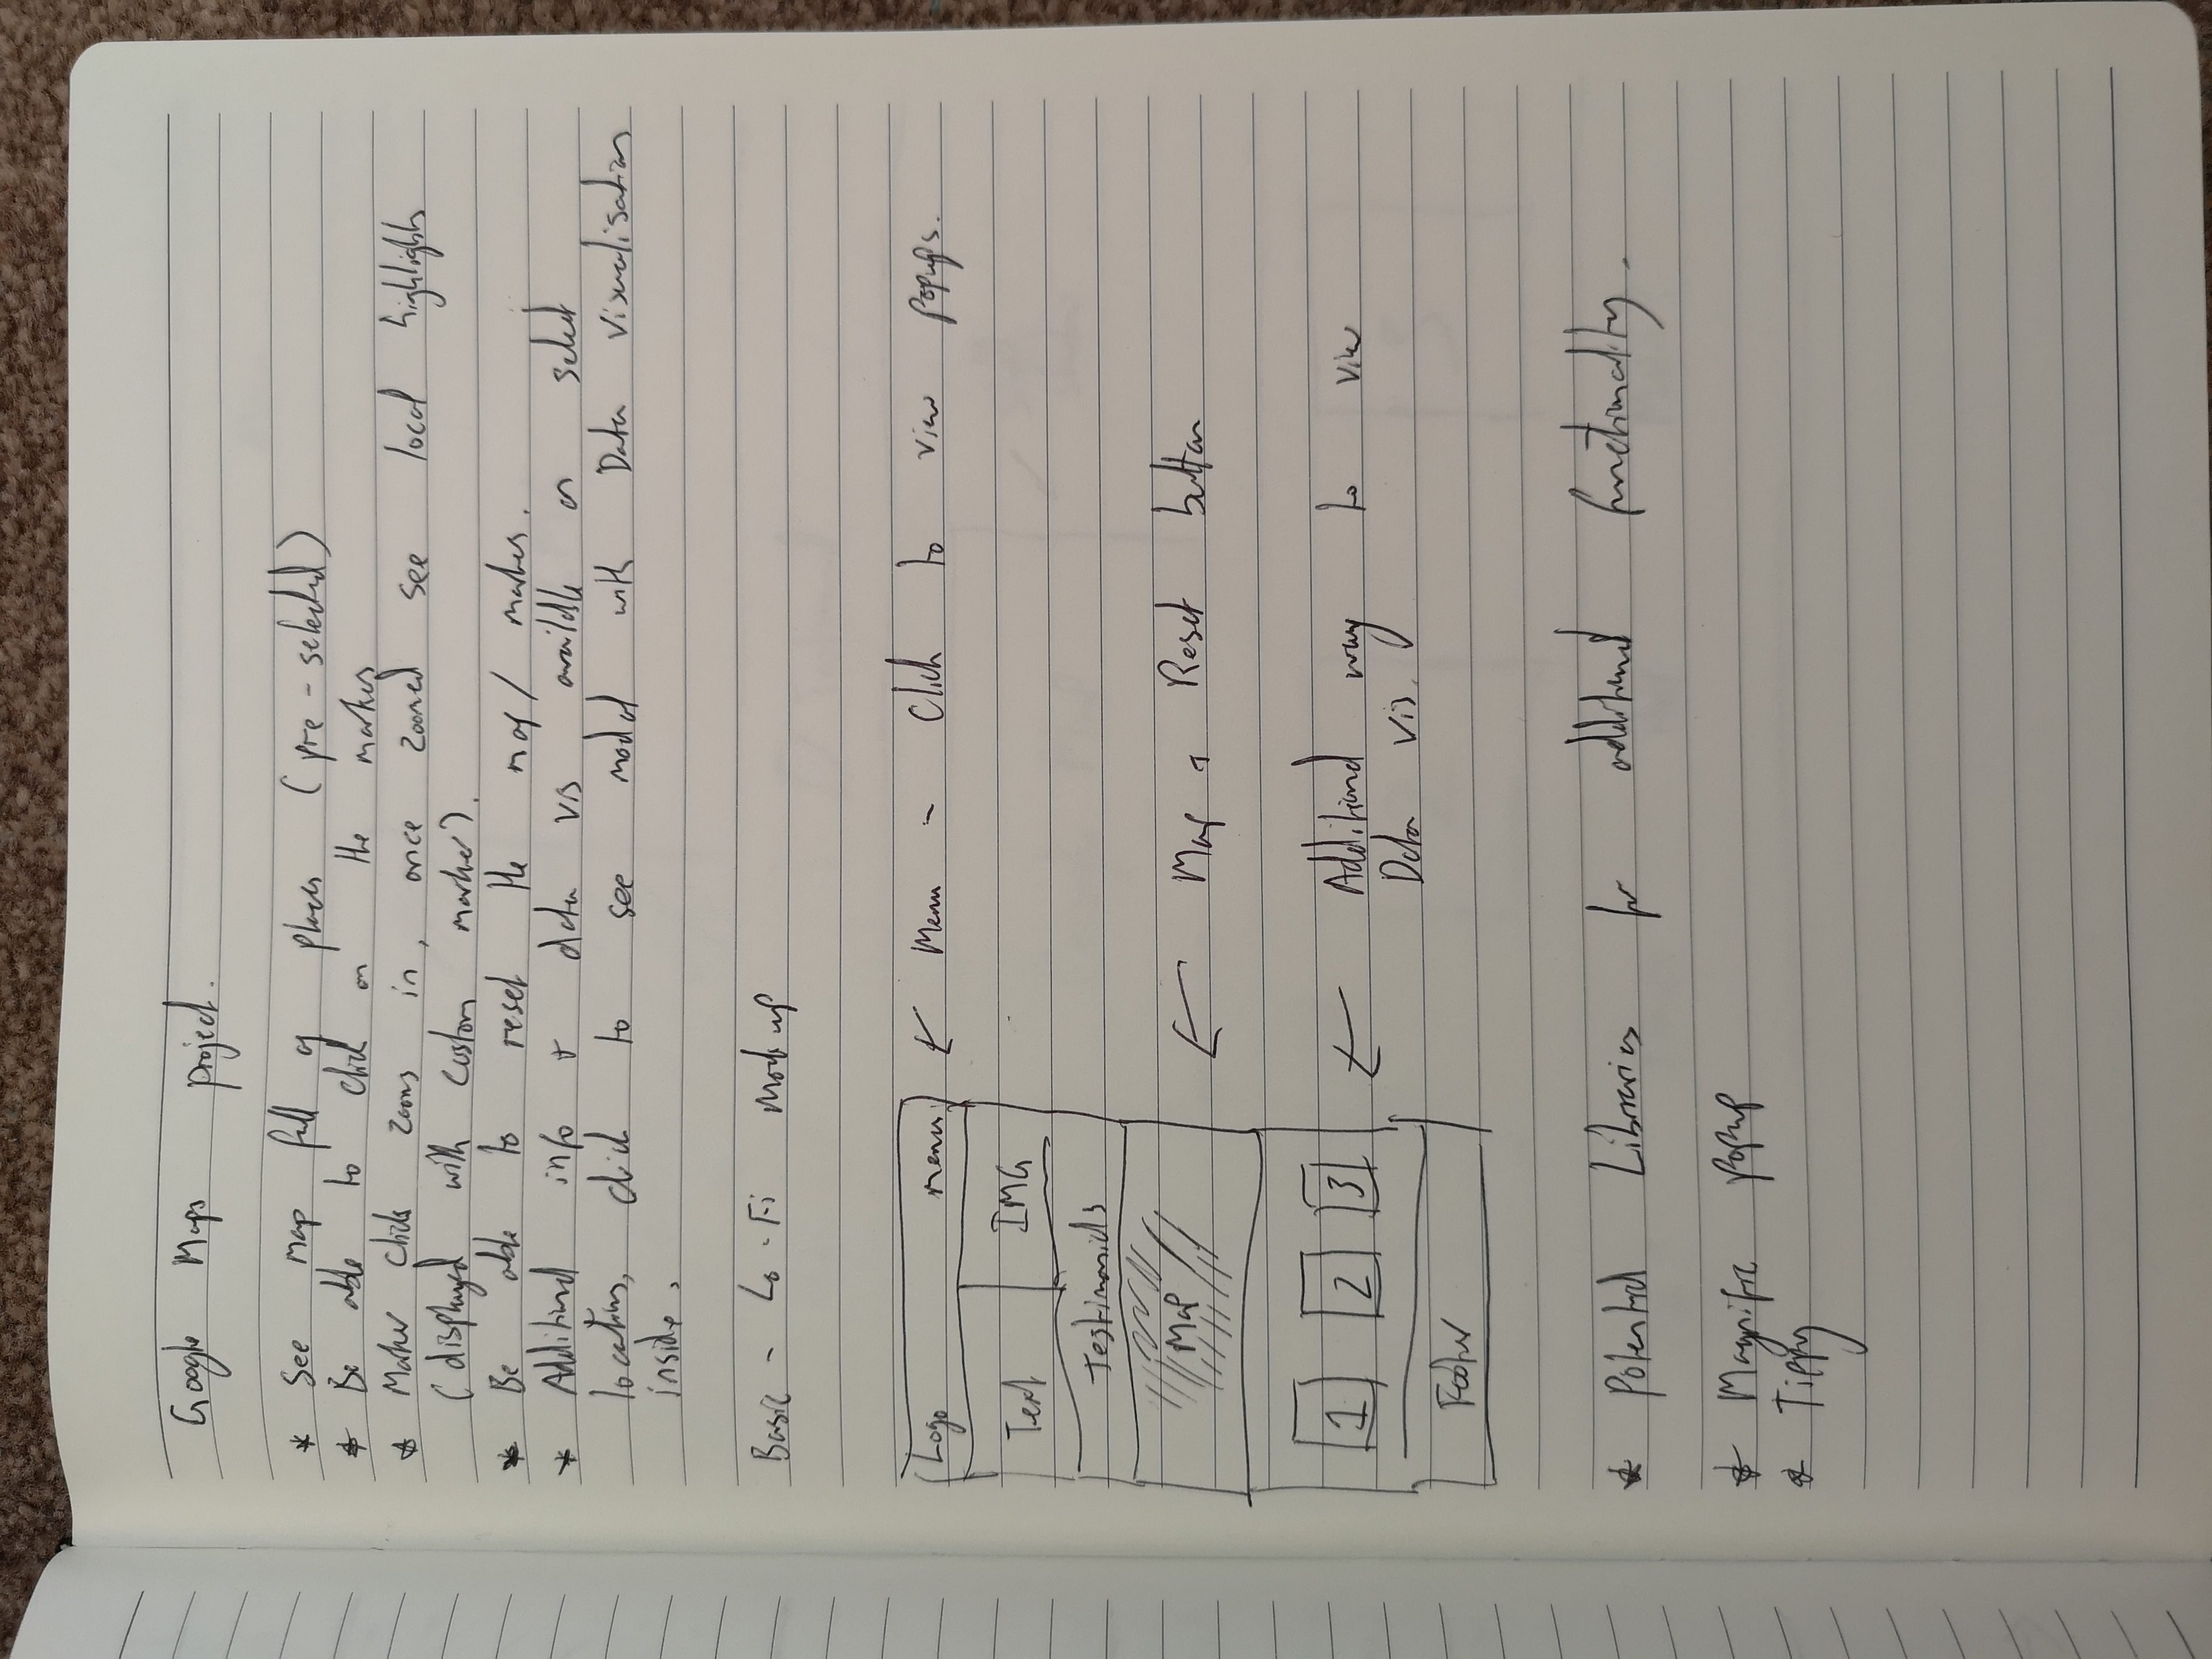 Google Maps project.
* See map full of places (pre-selected)
* Be able to click on the markers
* Marker click zooms in, once zoomed see local highlights
(displayed with custom marker).
* Be able to reset the map/markers.
* Additional info + data vis available on select
locations, click to see modal with Data Visualisation
inside.
Basic - Lo-Fi Mock up
Logo menu
← Menu - Click to view popups.
Text IMG
Testimonials
MAP
← Map + Reset button
1 2 3
← Additional way to view
Data Vis.
Footer
* Potential Libraries for additional functionality.
* Magnific Popup
* Tippy